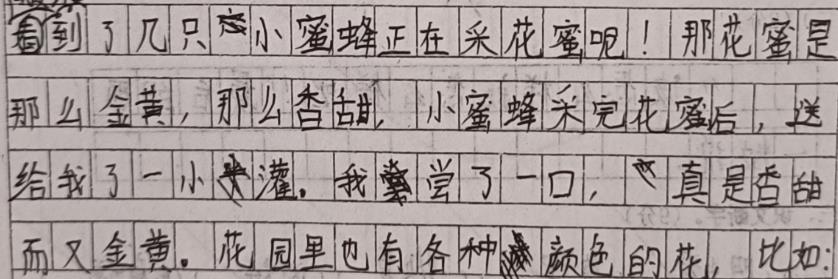 看到了几只小蜜蜂正在采花蜜呢！那花蜜是
那么金黄，那么香甜，小蜜蜂采完花蜜后，送
给我了一小灌。我尝了一口，真是香甜
而又金黄。花园里也有各种颜色的花，比如：